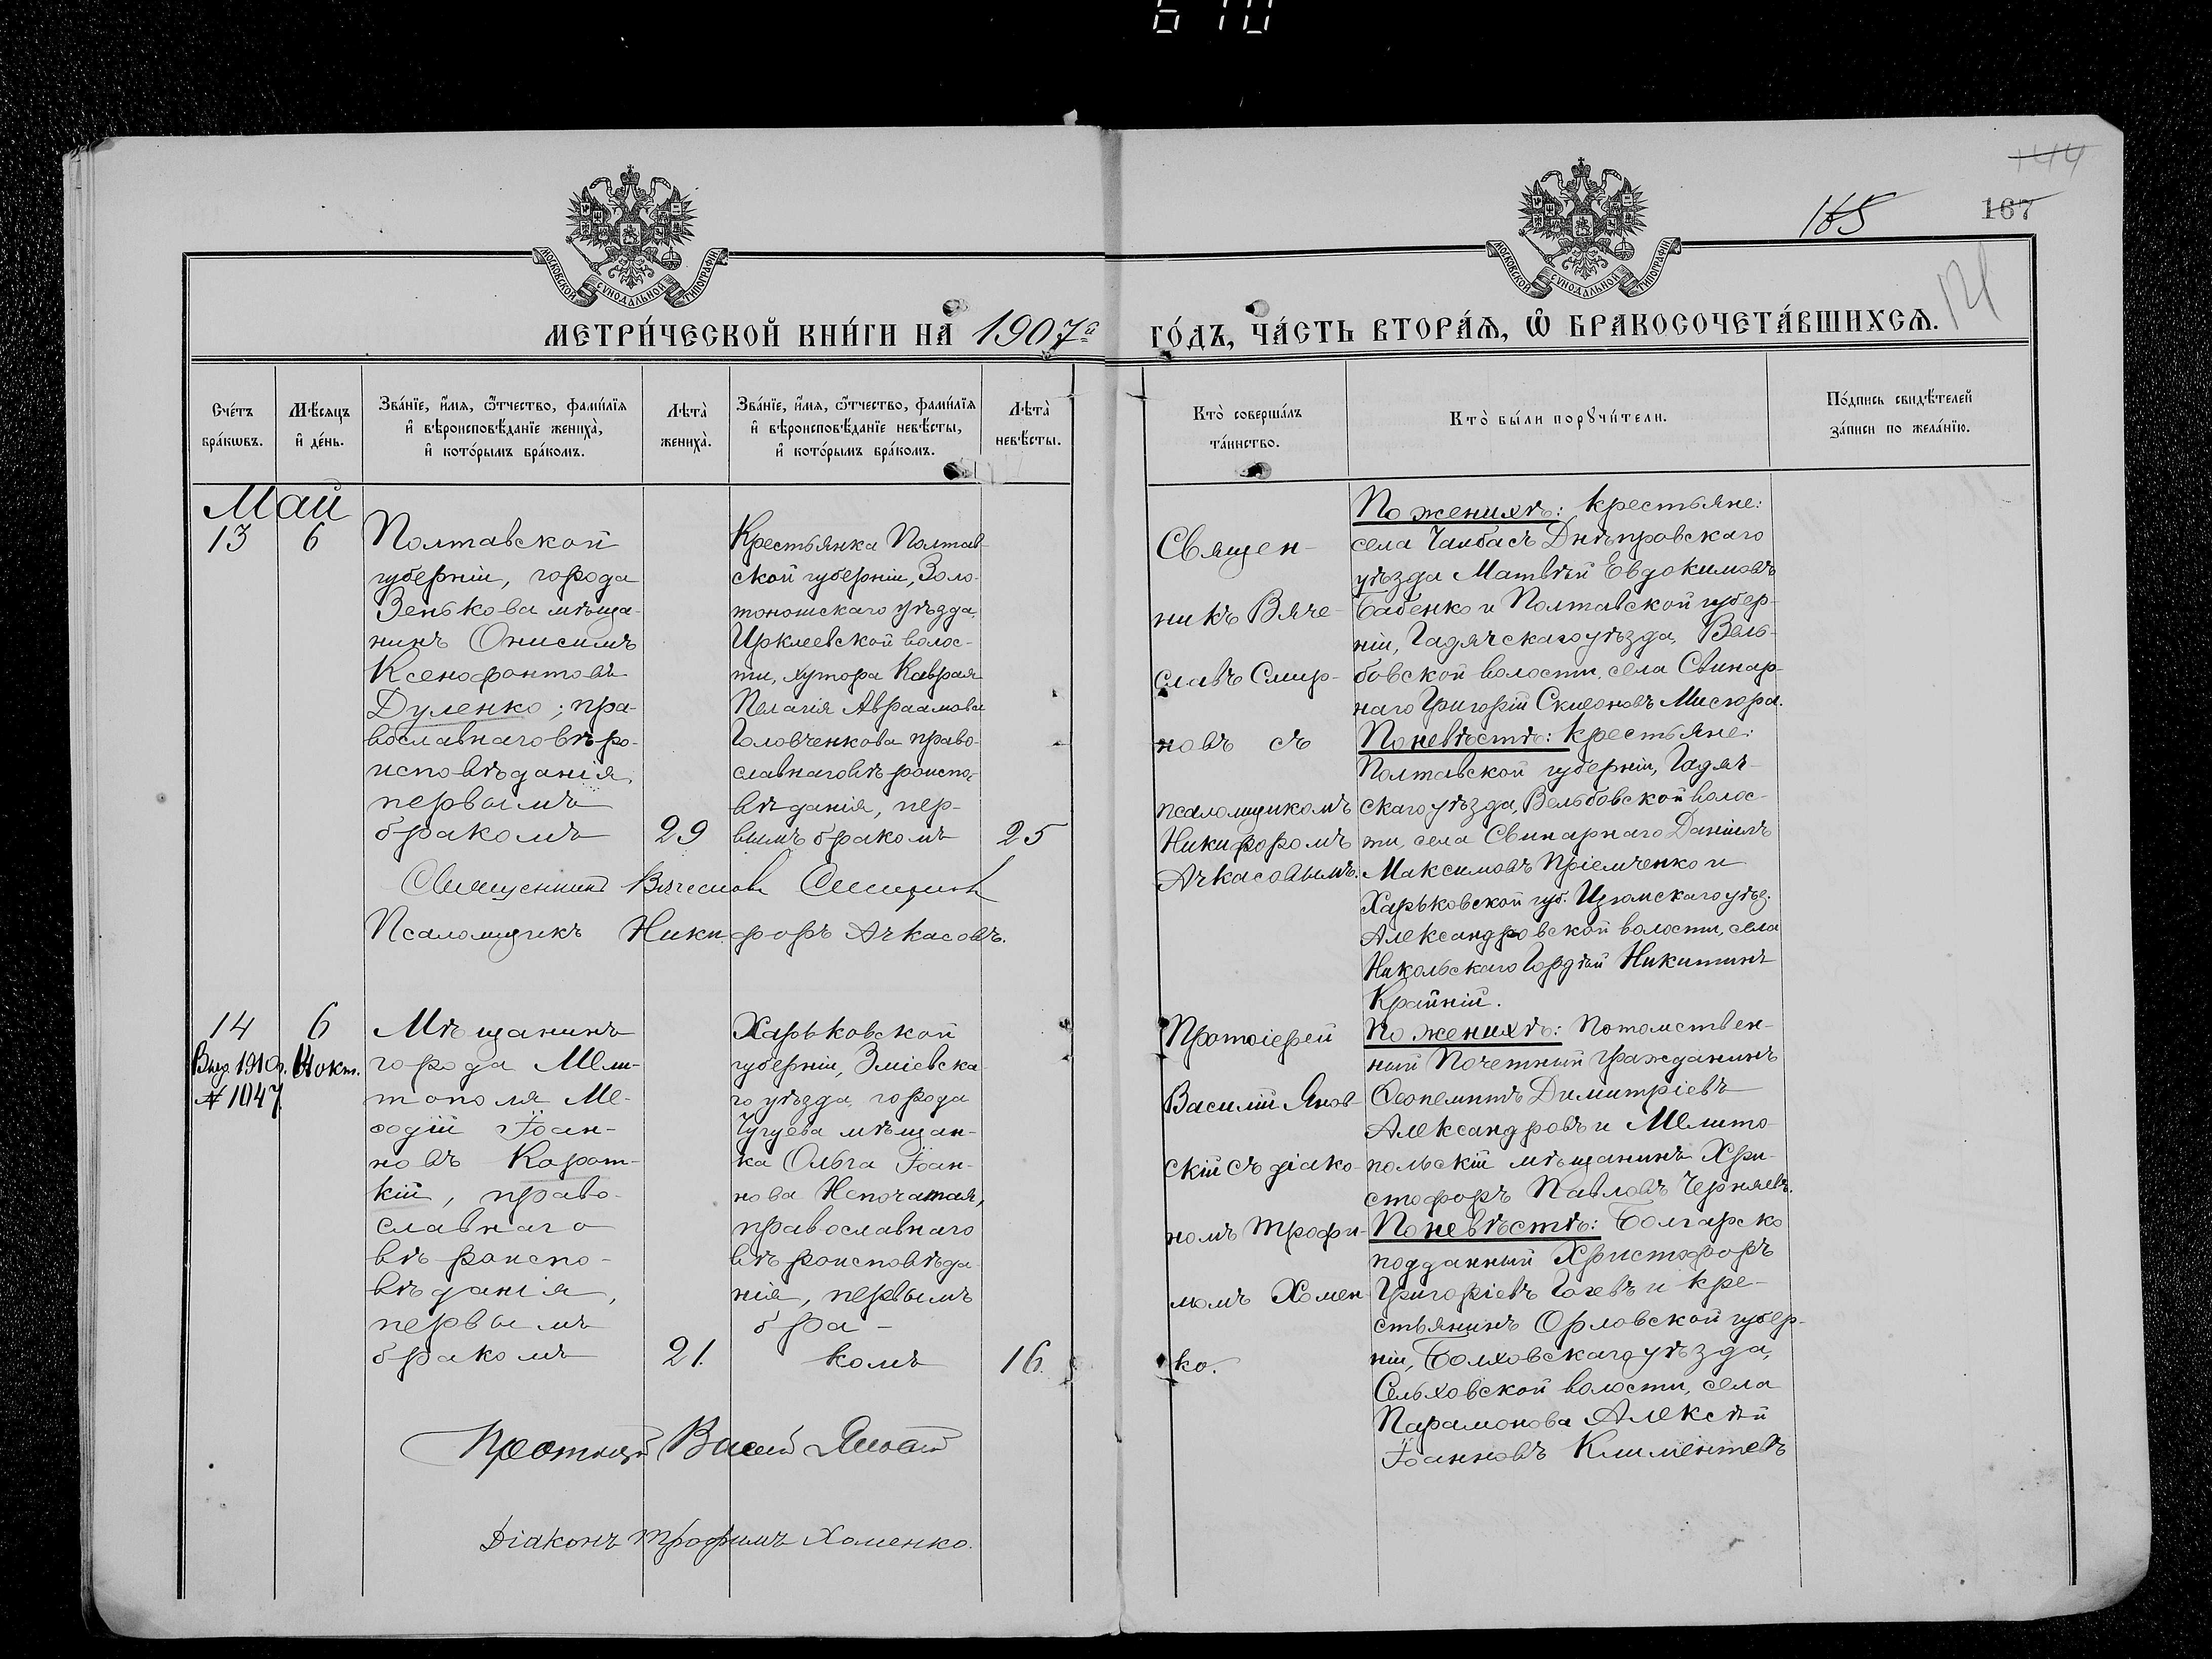 6 10
144
165
167
121
МОСКОВСКОЙ СѴНОДАЛЬНОЙ ТИПОГРАФІИ
МОСКОВСКОЙ СѴНОДАЛЬНОЙ ТИПОГРАФІИ
МЕТРИ́ЧЕСКОЙ КНИ́ГИ НА 1907й
ГО́ДЪ, ЧА́СТЬ ВТОРА́Ѧ, Ѿ БРАКОСОЧЕТА́ВШИХСѦ.
Сче́тъ
бра́кѡвъ.
Мѣ́сяцъ
и҆ де́нь.
Зва́нїе, и҆́мя, ѻ҆́тчество, фами́лїя
и҆ вѣроисповѣ́данїе жениха̀,
и҆ кото́рымъ бра́комъ.
Лѣта̀
жениха̀.
Зва́нїе, и҆́мя, ѻ҆́тчество, фами́лїя
и҆ вѣроисповѣ́данїе невѣ́сты,
и҆ кото́рымъ бра́комъ.
Лѣта̀
невѣ́сты.
Кто̀ соверша́лъ
та́инство.
Кто̀ бы́ли порꙋчи́тели.
По́дпись свидѣ́телей
за́писи по жела́нїю.
Май
13
6
Полтавской
губерніи, города
Зенькова мѣща-
нинъ Онисимъ
Ксенофонтовъ
Дуленко; пра-
вославнаго вѣро-
исповѣданія,
первымъ
бракомъ
29
Крестьянка Полтав-
ской губерніи, Золо-
тоношскаго уѣзда,
Ирклеевской волос-
ти, хутора Каврая
Пелагія Авраамова
Головченкова право-
славнаго вѣроиспо-
вѣданія, пер-
вымъ бракомъ
25
Священ-
никъ Вяче-
славъ Смир-
новъ съ
псаломщикомъ
Никифоромъ
Ачкасовымъ.
По женихѣ: крестьяне:
села Чалбасъ Днѣпровскаго
уѣзда Матвѣй Евдокимовъ
Бабенко и Полтавской губер-
ніи, Гадячскаго уѣзда, Вель-
бовской волости, села Свинар-
наго Григорій Мисюра.
По невѣстѣ: крестьяне:
Полтавской губерніи, Гадяч-
скаго уѣзда, Вельбовской волос-
ти, села Свинарнаго Даніилъ
Максимовъ Пріемченко и
Харьковской губ. Изюмскаго уѣз.
Александровской волости, села
Никольскаго Гордѣй Никитинъ
Крайній.
Священникъ Вячеславъ Смирновъ
Псаломщикъ Никифоръ Ачкасовъ.
14
Выд. 1910 г.
№ 1047.
6
14 окт.
Мѣщанинъ
города Мели-
тополя Ме-
ѳодій Іоан-
новъ Корот-
кій, право-
славнаго
вѣроиспо-
вѣданія,
первымъ
бракомъ
21.
Харьковской
губерніи, Зміевска-
го уѣзда, города
Чугуева мѣщан-
ка Ольга Іоан-
нова Непочатая,
православнаго
вѣроисповѣда-
нія, первымъ
бра-
комъ
16.
Протоіерей
Василій Янов-
скій съ діако-
номъ Трофи-
момъ Хомен
ко.
По женихѣ: Потомствен-
ный Почетный Гражданинъ
Ѳеопемптъ Димитріевъ
Александровъ и Мелито-
польскій мѣщанинъ Хри-
стофоръ Павловъ Черняевъ.
По невѣстѣ: Болгарско
подданный Христофоръ
Григоріевъ и кре-
стьянинъ Орловской губер-
ніи, Болховскаго уѣзда,
волости, села
Парамонова Алексѣй
Іоанновъ Климентевъ
Протоіерей Василій Яновскій
Діаконъ Трофимъ Хоменко.